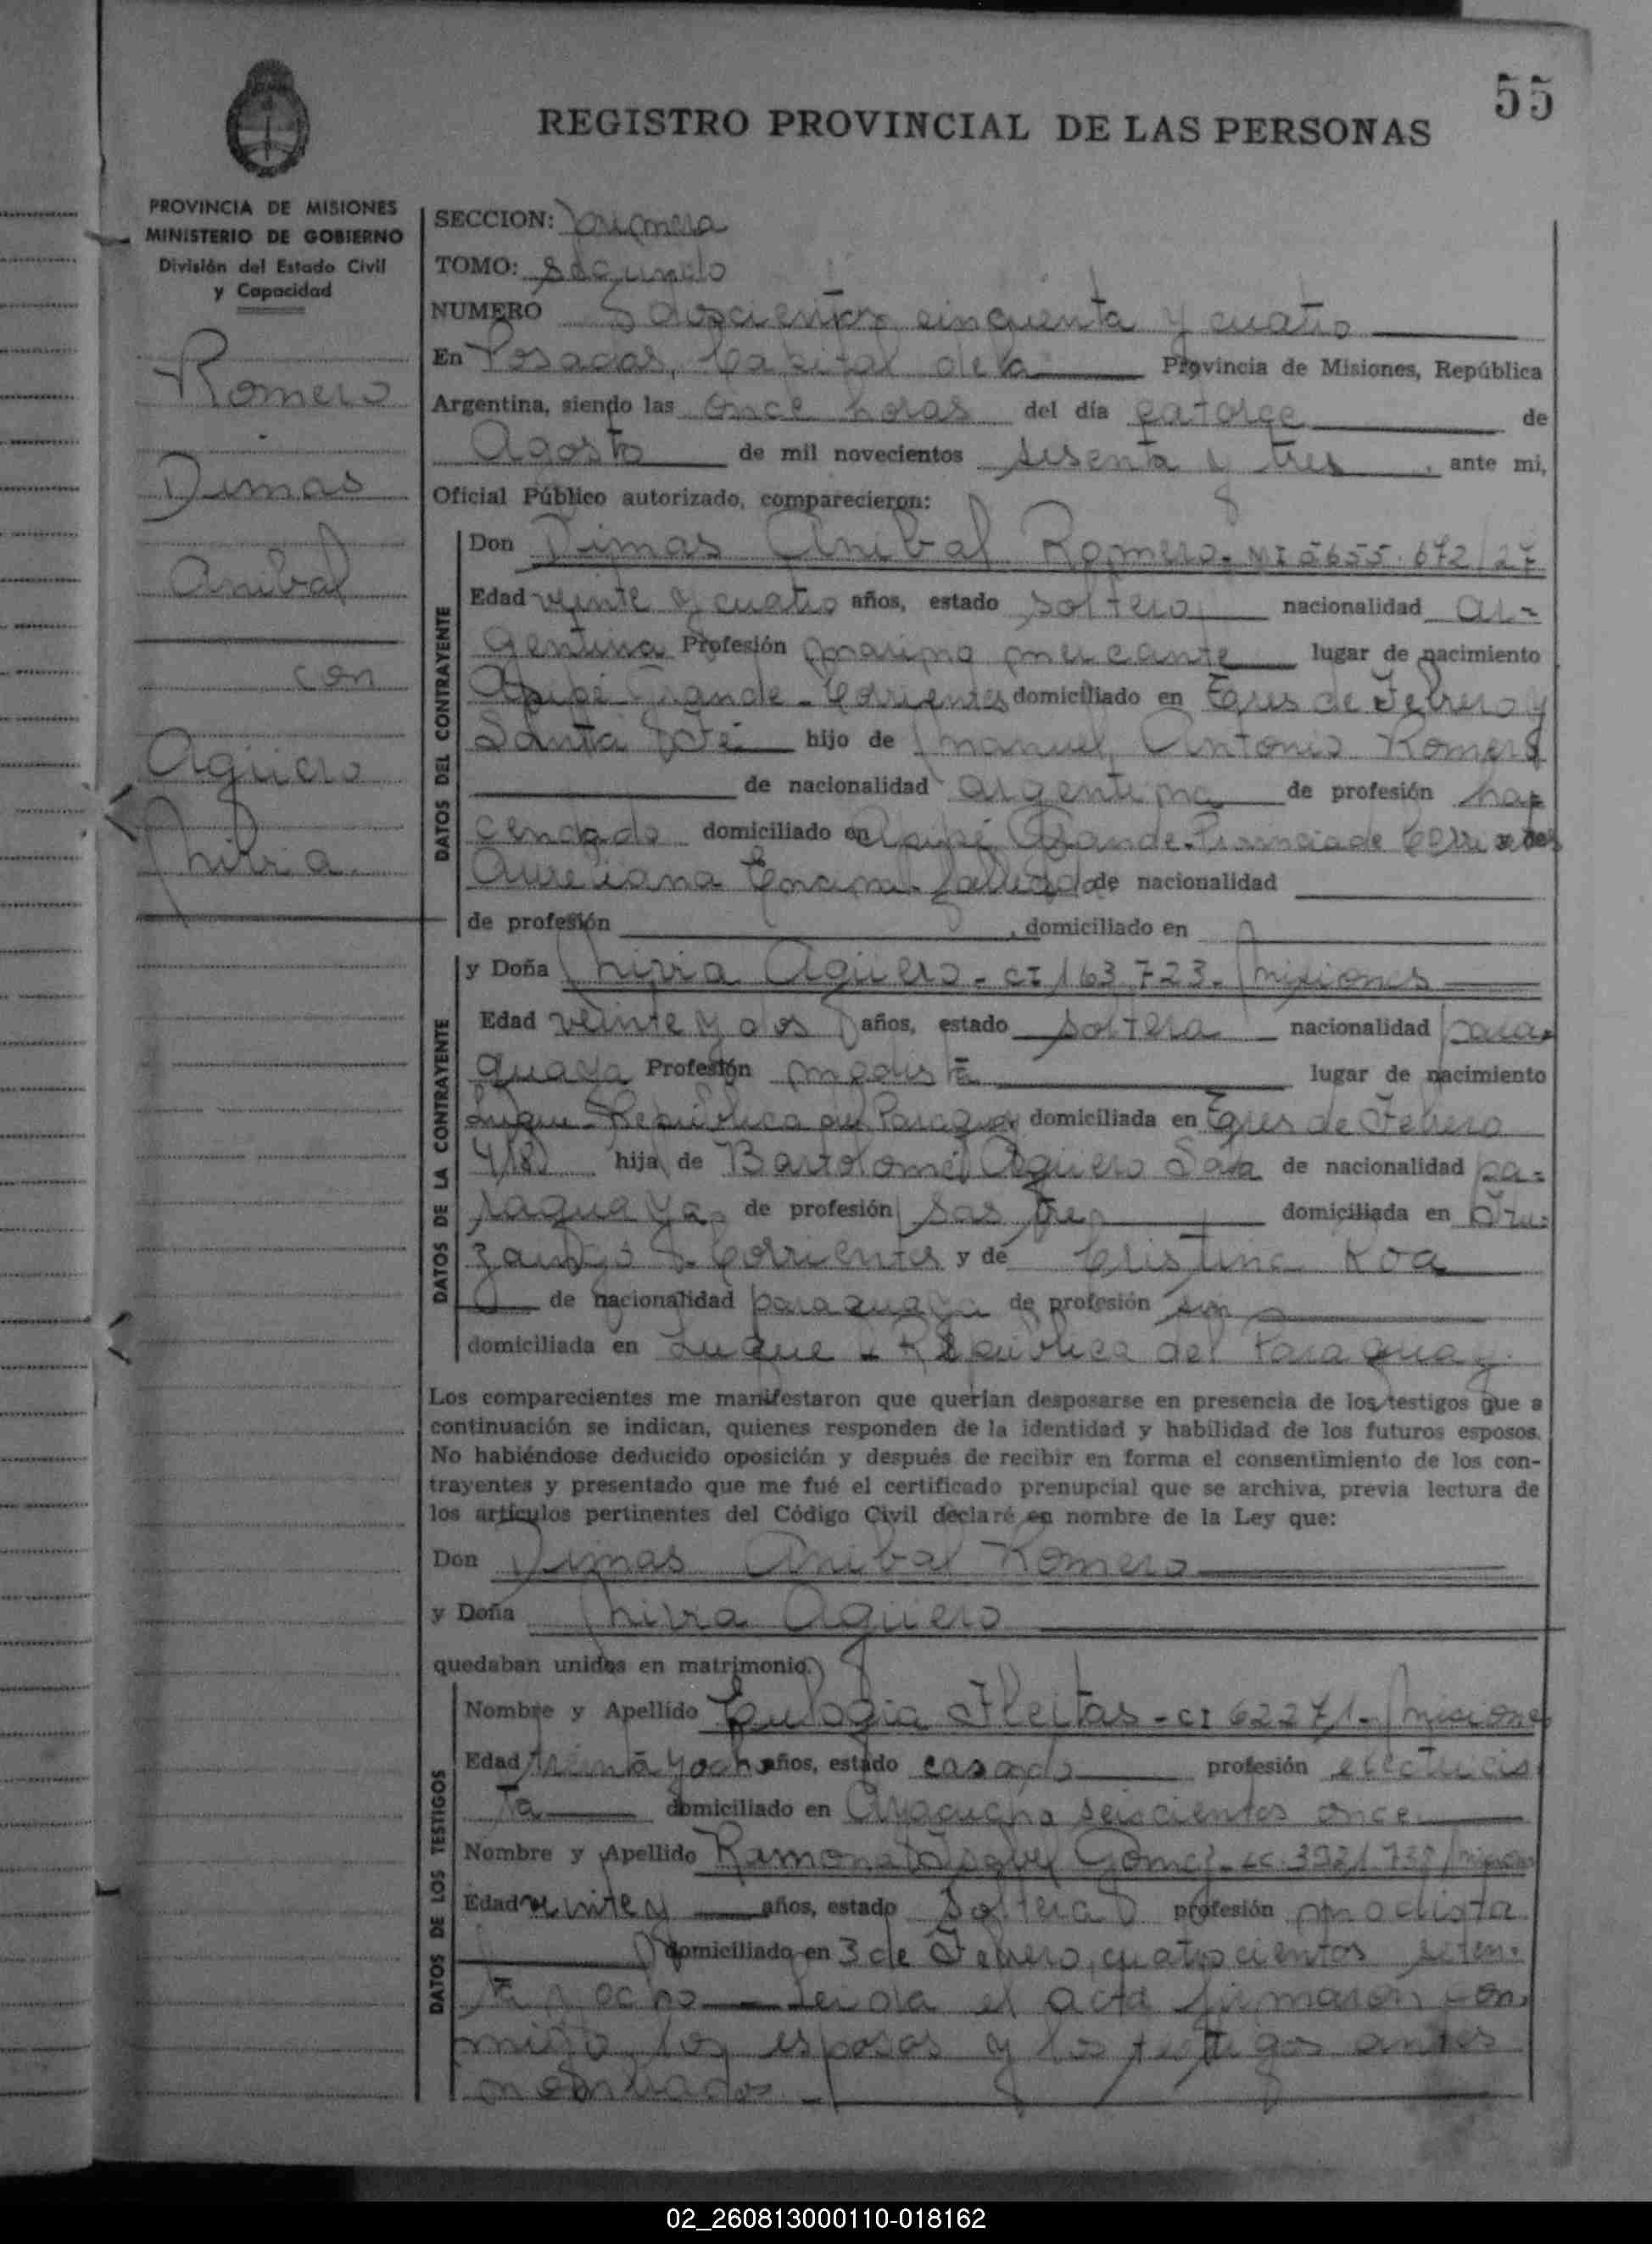 55
REGISTRO PROVINCIAL DE LAS PERSONAS
PROVINCIA DE MISIONES
MINISTERIO DE GOBIERNO
División del Estado Civil
y Capacidad
Romero
Dimas
Anibal
con
Agüero
Nivia
SECCION: primera
TOMO: segundo
NUMERO doscientos cincuenta y cuatro
En Posadas, Capital de la Provincia de Misiones, República
Argentina, siendo las once horas del día catorce de
Agosto de mil novecientos sesenta y tres, ante mi,
Oficial Público autorizado, comparecieron:
DATOS DEL CONTRAYENTE
Don Dimas Anibal Romero - MI 5655.672/27
Edad veinte y cuatro años, estado soltero nacionalidad ar-
gentina Profesión marino mercante lugar de nacimiento
Apipé Grande - Corrientes domiciliado en Tres de Febrero y
Santa Fé hijo de Manuel Antonio Romero
de nacionalidad argentina de profesión ha-
cendado domiciliado en Apipé Grande - Provincia de
Aureliana de nacionalidad
de profesión , domiciliado en
DATOS DE LA CONTRAYENTE
y Doña Nivia Agüero - CI 163.723 - Misiones
Edad veinte y dos años, estado soltera nacionalidad para-
guaya Profesión modista lugar de nacimiento
Luque - República del Paraguay domiciliada en Tres de Febrero
478 hija de Bartolomé Agüero de nacionalidad pa-
raguaya de profesión sastre domiciliada en Itu-
zaingó - Corrientes y de Cristina Roa
de nacionalidad paraguaya de profesión sin
domiciliada en Luque - República del Paraguay.
Los comparecientes me manifestaron que querían desposarse en presencia de los testigos que a
continuación se indican, quienes responden de la identidad y habilidad de los futuros esposos.
No habiéndose deducido oposición y después de recibir en forma el consentimiento de los con-
trayentes y presentado que me fué el certificado prenupcial que se archiva, previa lectura de
los artículos pertinentes del Código Civil declaré en nombre de la Ley que:
Don Dimas Anibal Romero
y Doña Nivia Agüero
quedaban unidos en matrimonio.
DATOS DE LOS TESTIGOS
Nombre y Apellido Eulogia Fleitas - CI 62271 - Misiones
Edad treinta y ocho años, estado casado profesión electricis
ta domiciliado en Ayacucho seiscientos once
Nombre y Apellido Ramona Isabel Gomez - LC
Edad veinte y años, estado soltera profesión modista
domiciliado en 3 de Febrero, cuatrocientos seten-
ta y ocho - Leida el acta firmaron con-
migo los esposos y los testigos antes
nombrados -
02_260813000110-018162